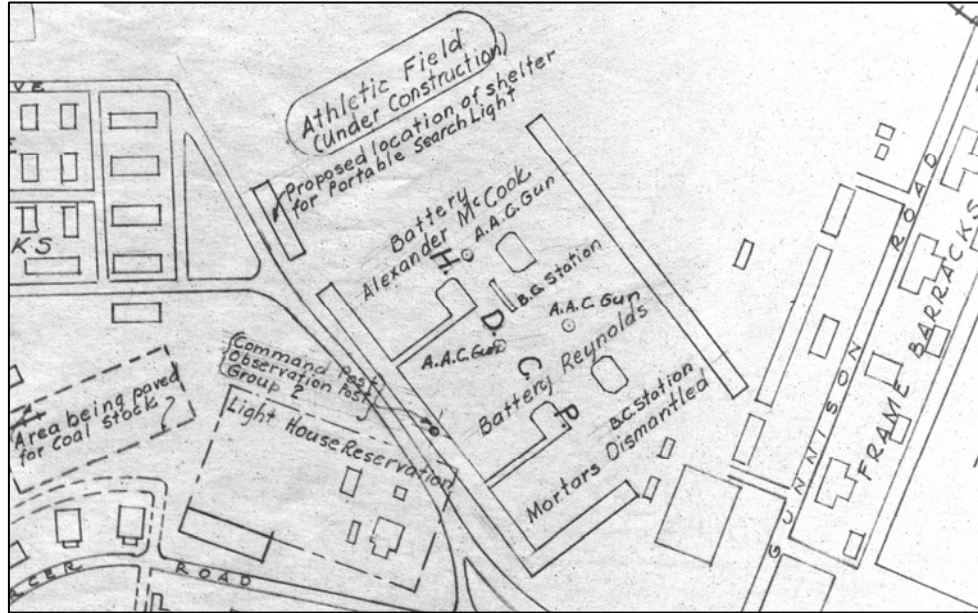 Athletic Field
(Under Construction)
Proposed location of shelter
for Portable Search Light
VE
E
KS
Battery
Alexander McCook
A.A.C. Gun
B.C. Station
H.D.C.P.
A.A.C. Gun
A.A.C. Gun
Battery Reynolds
B.C. Station
Mortars Dismantled
Command Post
Observation Post
Group 2
Light House Reservation
Area being paved
for Coal Stock
CER ROAD
GUNNISON ROAD
FRAME BARRACKS